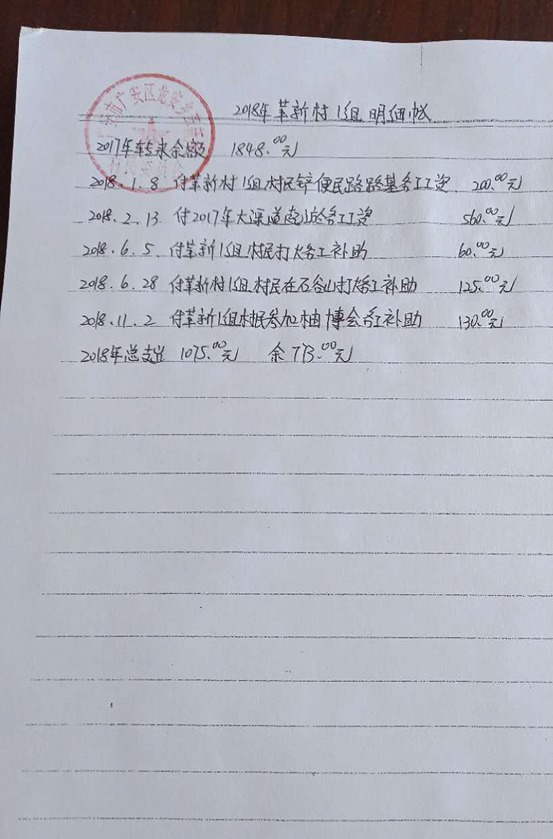 2018年革新村1组明细帐
广安市广安区龙安乡革新
2017年转来余额 1848.00元
2018.1.8 付革新村1组村民铲便民路路基务工工资 200.00元
2018.2.13 付2017年大渠道清淤务工工资 560.00元
2018.6.5. 付革新1组村民打火务工补助 60.00元
2018.6.28 付革新村1组村民在石谷山打火务工补助 125.00元
2018.11.2 付革新1组村民参加柚博会务工补助 130.00元
2018年总支出 1075.00元 余773.00元